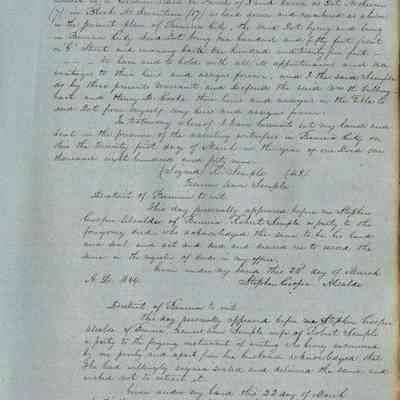 (7) in Block No Seventeen (17) as laid down and numbered as shown
in the present plan of Benicia City, the said Lot lying and being
in Benicia City said Lot being one hundred and fifty feet front
on G Street and running back one hundred and twenty five feet
To have and to hold with all its appurtenances and
to their heirs and assigns forever, and I the said Semple
do by these presents warrant and defend the said Wm H.
and Henry D. Cooke their heirs and assigns in the title to
said Lot from myself my heirs and assigns forever.
In testimony whereof I have hereunto set my hand and
seal in the presence of the assisting witnesses in Benicia City on
this the Twenty first day of March in the year of our Lord one
thousand eight hundred and forty nine.
(Signed R. Semple (LS)
Frances Ann Semple
District of Benicia to wit
This day personally appeared before me Stephen
Cooper Alcalde of Benicia Robert Semple a party to the
foregoing deed who acknowledged the same to be his hand
and seal and act and deed and desired me to record the
same in the register of deeds in my office.
Given under my hand this 22d day of March
A.D. 1849. Stephen Cooper Alcalde
District of Benicia to wit
This day personally appeared before me Stephen Cooper
Alcalde of Benicia Frances Ann Semple wife of Robert Semple
a party to the foregoing instrument of writing who being examined
by me privily and apart from her husband acknowledged that
she had willingly signed sealed and delivered the same and
wished not to retract it.
Given under my hand this 22 day of March